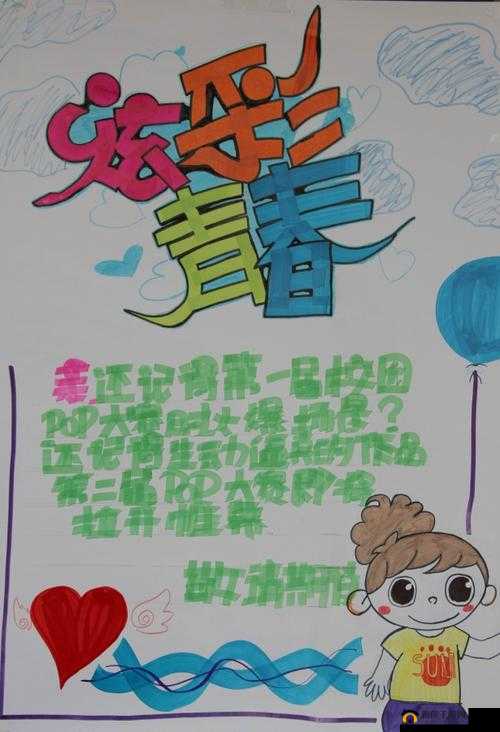 炫彩
青春
亲还记得第一届校园
POP大赛时火爆场景？
还记得生动逼真的作品
第二届POP大赛即将
拉开帷幕
敬请期待
SUN